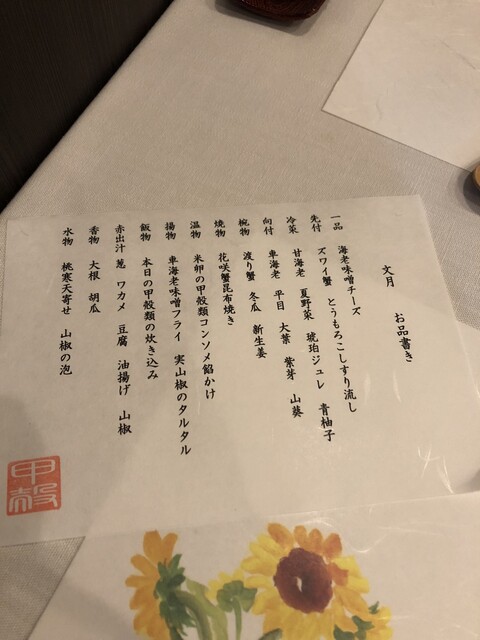 文月　お品書き
一品　海老味噌チーズ
先付　ズワイ蟹　とうもろこしすり流し
冷菜　甘海老　夏野菜　琥珀ジュレ　青柚子
向付　車海老　平目　大葉　紫芽　山葵
椀物　渡り蟹　冬瓜　新生姜
焼物　花咲蟹昆布焼き
温物　米卵の甲殻類コンソメ餡かけ
揚物　車海老味噌フライ　実山椒のタルタル
飯物　本日の甲殻類の炊き込み
赤出汁　葱　ワカメ　豆腐　油揚げ　山椒
香物　大根　胡瓜
水物　桃寒天寄せ　山椒の泡
甲殻